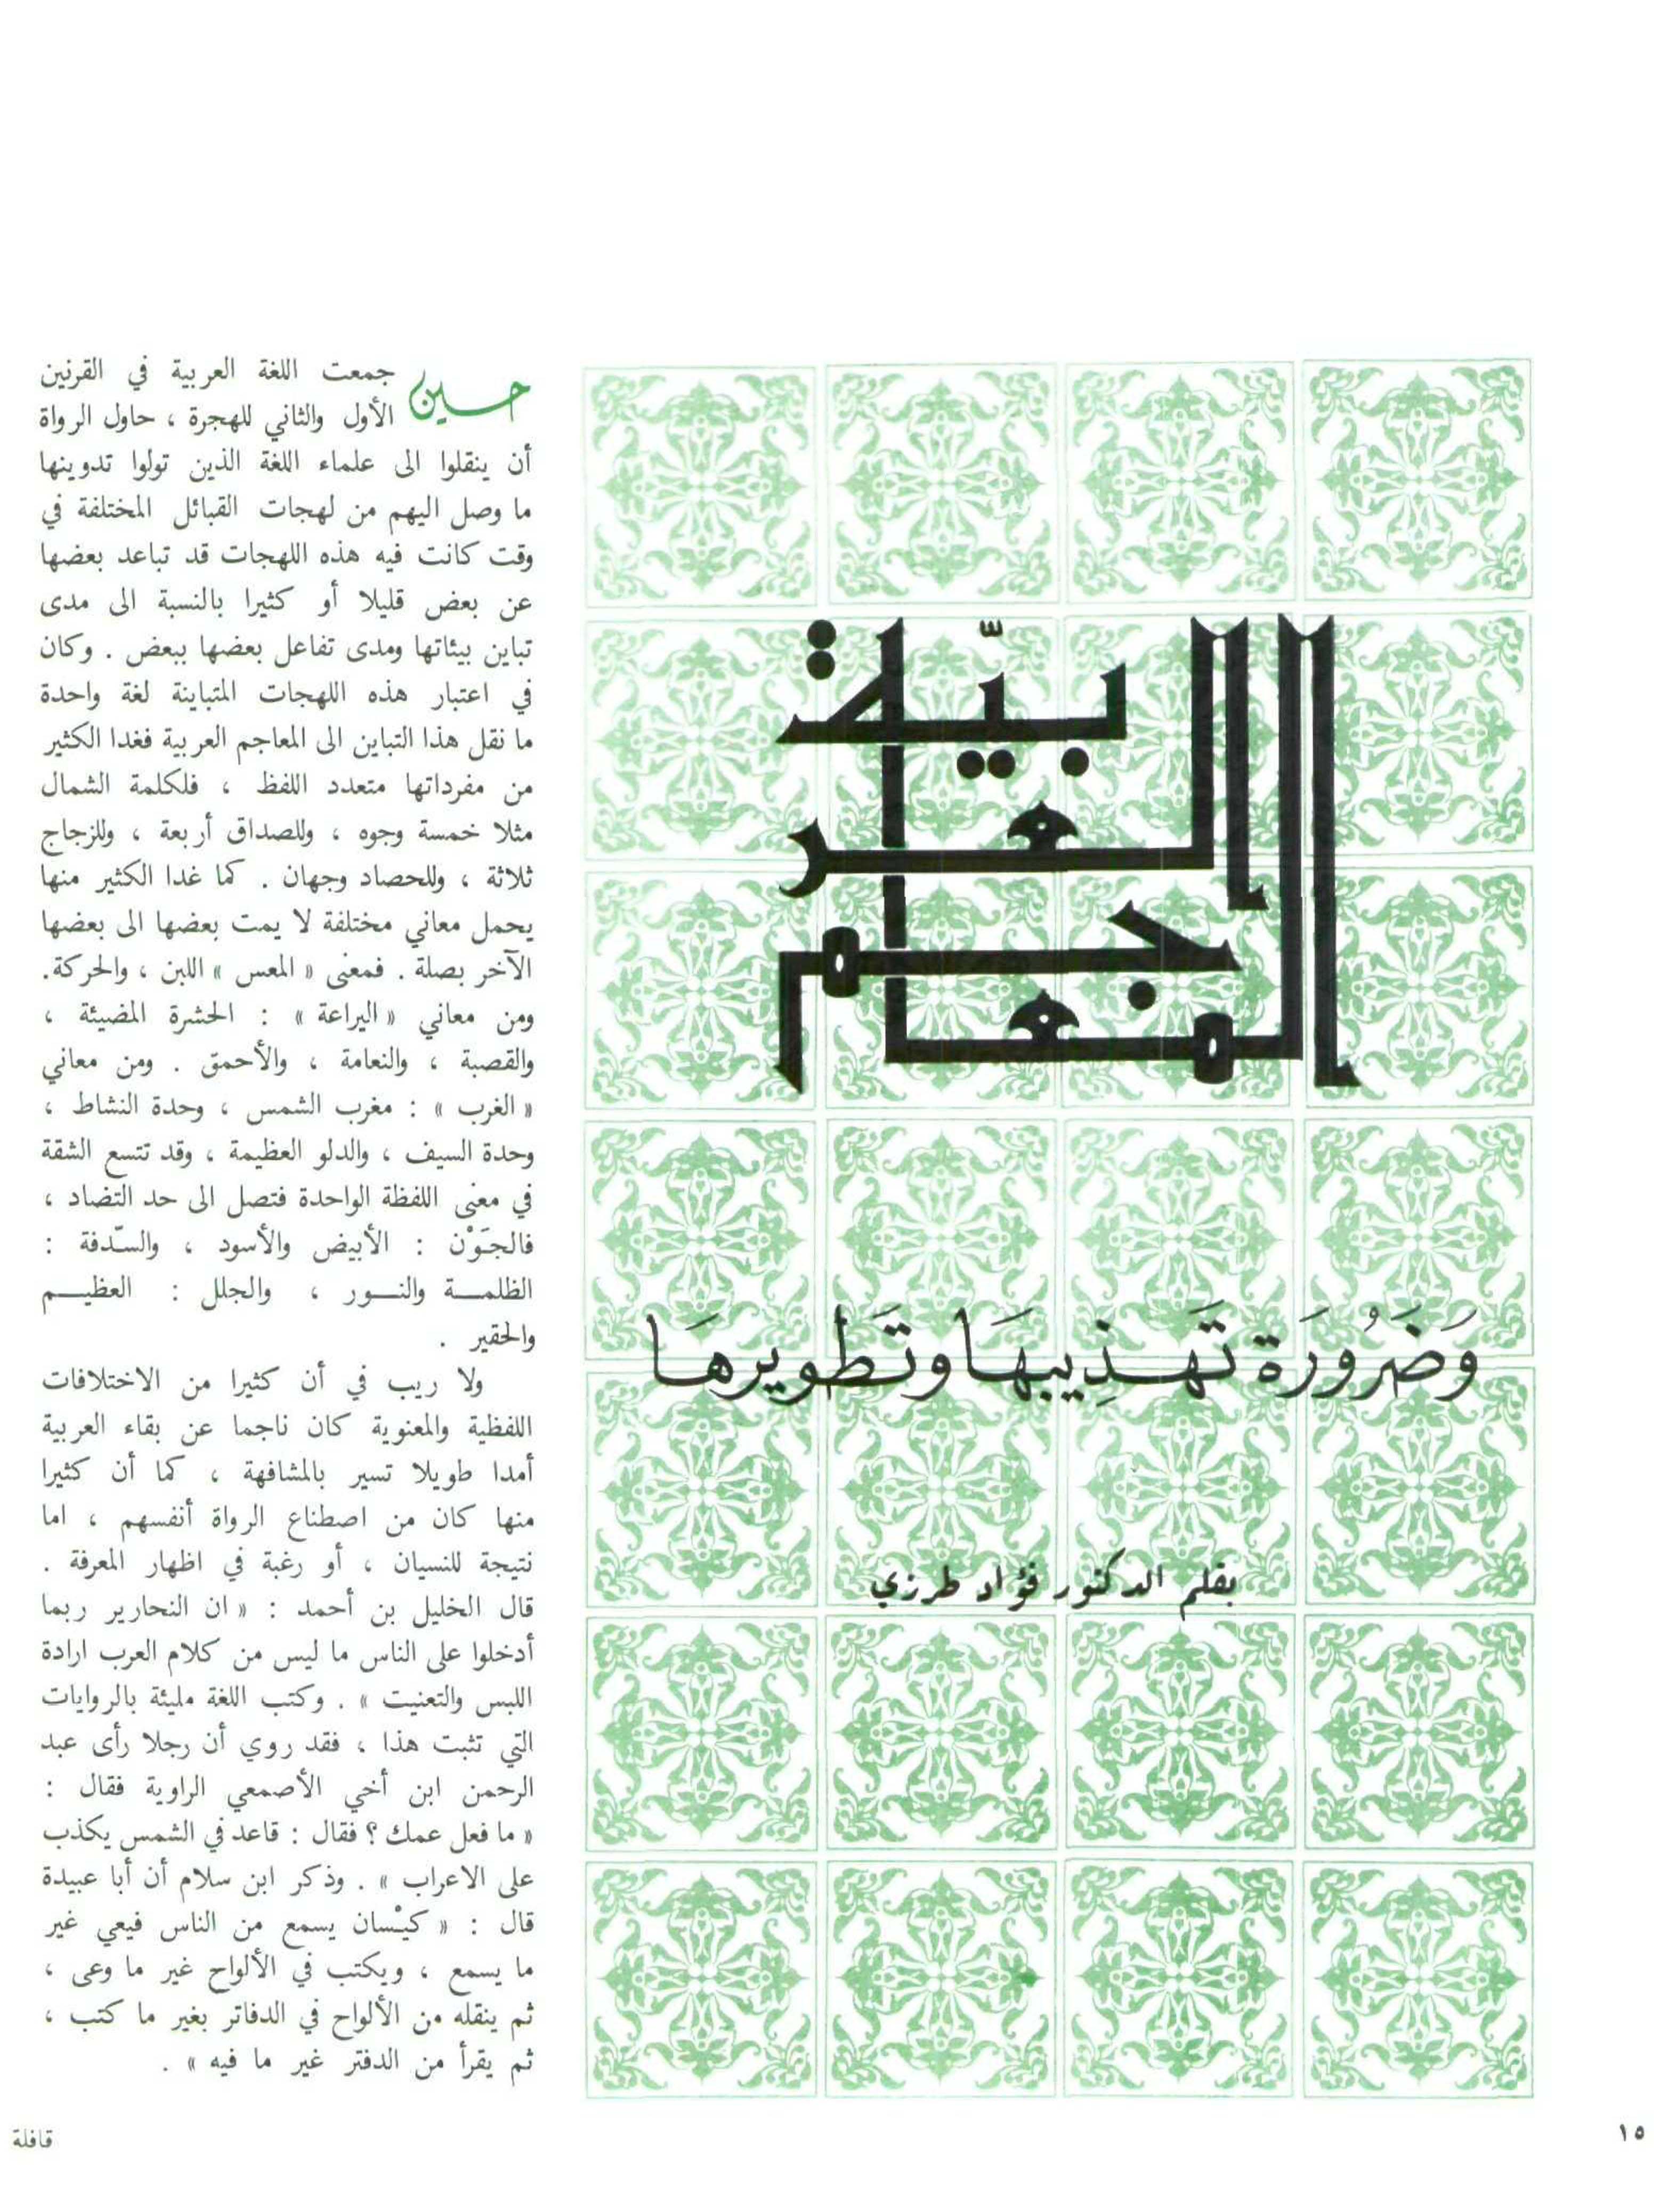 المعاجم
العربيّة
وَضَرُورَة تَهذِيبهَا وتَطويرهَا
بقلم الدكتور فؤاد طرزي
حين جمعت اللغة العربية في القرنين
الأول والثاني للهجرة ، حاول الرواة
أن ينقلوا الى علماء اللغة الذين تولوا تدوينها
ما وصل اليهم من لهجات القبائل المختلفة في
وقت كانت فيه هذه اللهجات قد تباعد بعضها
عن بعض قليلا أو كثيرا بالنسبة الى مدى
تباين بيئاتها ومدى تفاعل بعضها ببعض . وكان
في اعتبار هذه اللهجات المتباينة لغة واحدة
ما نقل هذا التباين الى المعاجم العربية فغدا الكثير
من مفرداتها متعدد اللفظ ، فلكلمة الشمال
مثلا خمسة وجوه ، وللصداق أربعة ، وللزجاج
ثلاثة ، وللحصاد وجهان . كما غدا الكثير منها
يحمل معاني مختلفة لا يمت بعضها الى بعضها
الآخر بصلة . فمعنى « المعس » اللبن ، والحركة.
ومن معاني « اليراعة » : الحشرة المضيئة ،
والقصبة ، والنعامة ، والأحمق . ومن معاني
« الغرب » : مغرب الشمس ، وحدة النشاط ،
وحدة السيف ، والدلو العظيمة ، وقد تتسع الشقة
في معنى اللفظة الواحدة فتصل الى حد التضاد ،
فالجَوْن : الأبيض والأسود ، والسّدفة :
الظلمة والنور ، والجلل : العظيم
والحقير .
ولا ريب في أن كثيرا من الاختلافات
اللفظية والمعنوية كان ناجما عن بقاء العربية
أمدا طويلا تسير بالمشافهة ، كما أن كثيرا
منها كان من اصطناع الرواة أنفسهم ، اما
نتيجة للنسيان ، أو رغبة في اظهار المعرفة .
قال الخليل بن أحمد : « ان النحارير ربما
أدخلوا على الناس ما ليس من كلام العرب ارادة
اللبس والتعنيت » . وكتب اللغة مليئة بالروايات
التي تثبت هذا ، فقد روي أن رجلا رأى عبد
الرحمن ابن أخي الأصمعي الراوية فقال :
« ما فعل عمك ؟ فقال : قاعد في الشمس يكذب
على الاعراب » . وذكر ابن سلام أن أبا عبيدة
قال : « كيْسان يسمع من الناس فيعي غير
ما يسمع ، ويكتب في الألواح غير ما وعى ،
ثم ينقله من الألواح في الدفاتر بغير ما كتب ،
ثم يقرأ من الدفتر غير ما فيه » .
١٥
قافلة